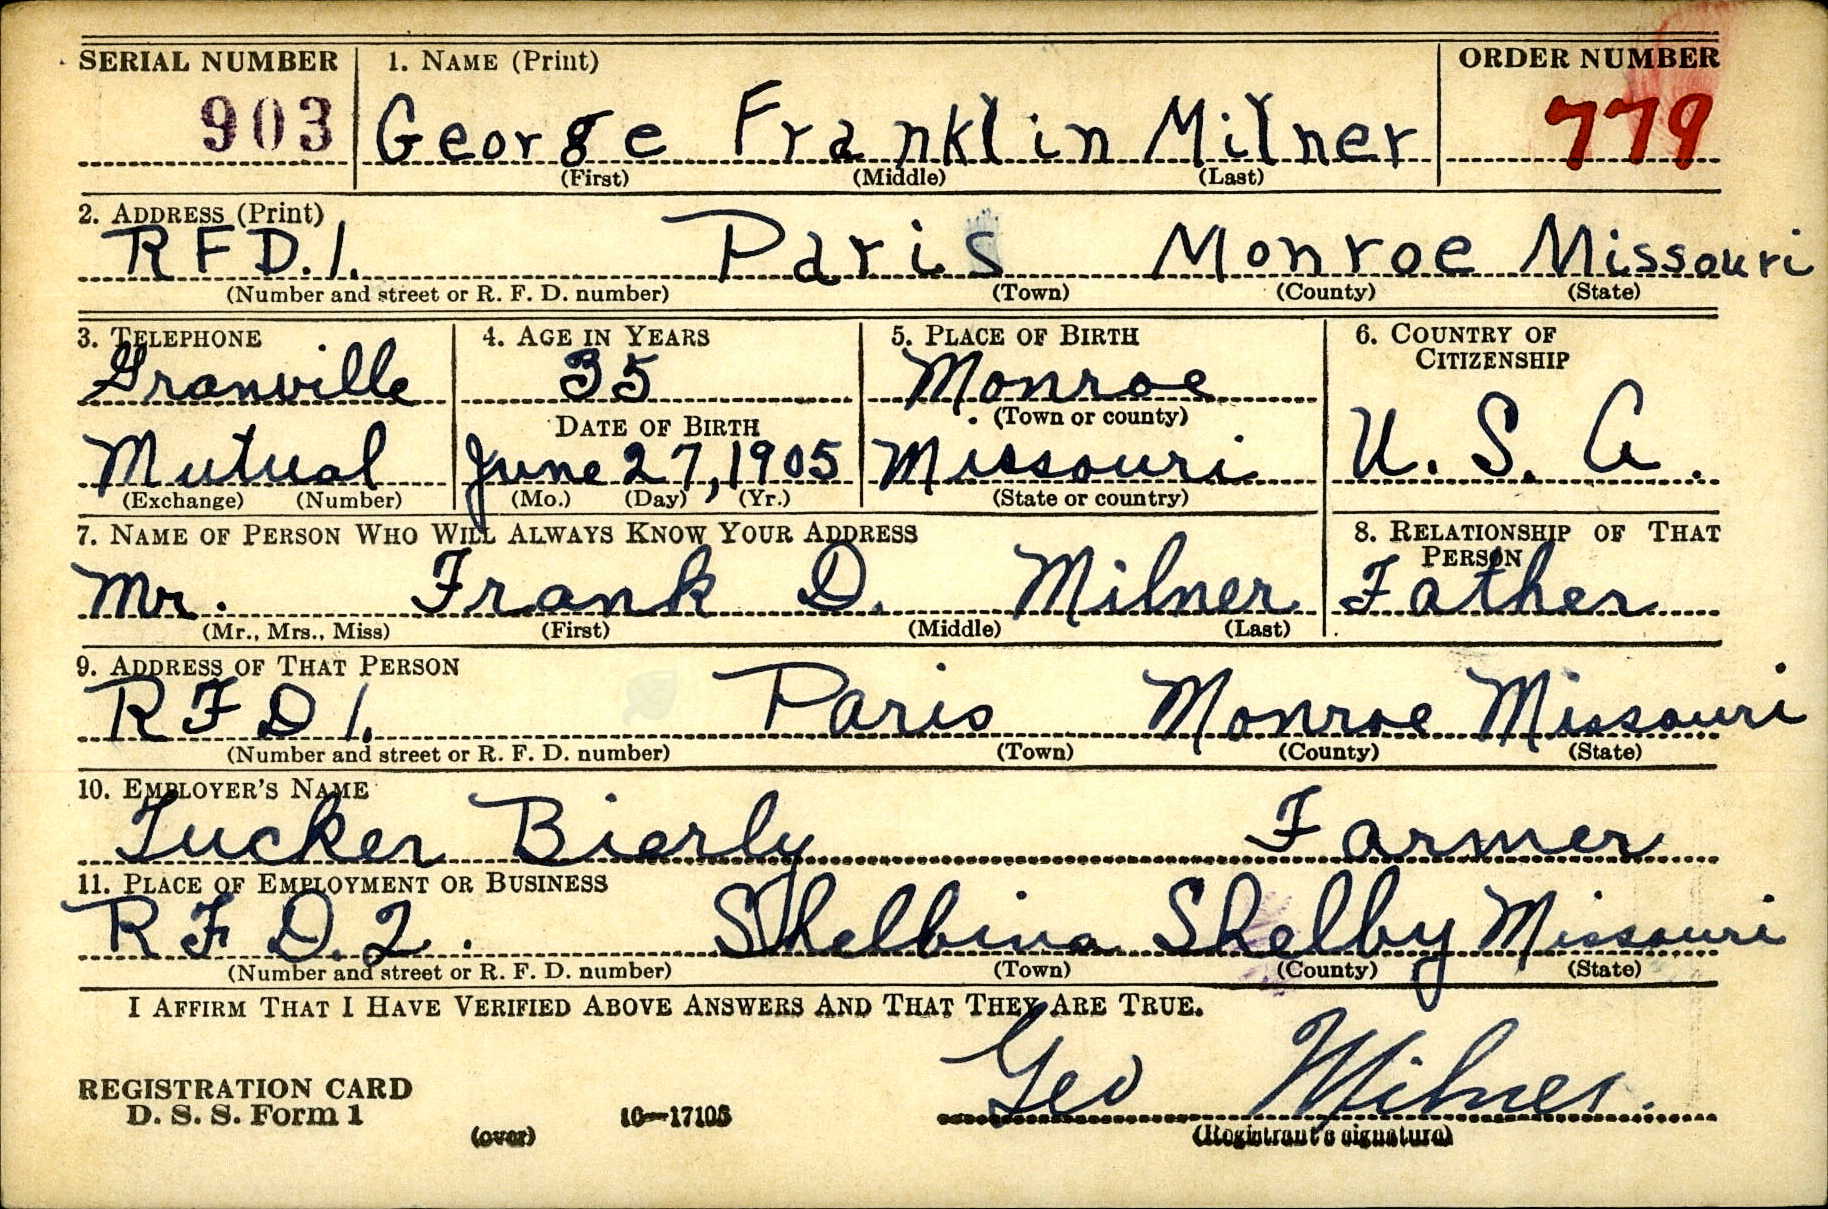 SERIAL NUMBER 1. NAME (Print) ORDER NUMBER
903 George Franklin Milner 779
(First) (Middle) (Last)
2. ADDRESS (Print)
R F D. 1. Paris Monroe Missouri
(Number and street or R. F. D. number) (Town) (County) (State)
3. TELEPHONE 4. AGE IN YEARS 5. PLACE OF BIRTH 6. COUNTRY OF
CITIZENSHIP
Granville 35 Monroe
DATE OF BIRTH (Town or county)
Mutual June 27, 1905 Missouri U. S. A.
(Exchange) (Number) (Mo.) (Day) (Yr.) (State or country)
7. NAME OF PERSON WHO WILL ALWAYS KNOW YOUR ADDRESS 8. RELATIONSHIP OF THAT
PERSON
Mr. Frank D. Milner Father
(Mr., Mrs., Miss) (First) (Middle) (Last)
9. ADDRESS OF THAT PERSON
R F D 1. Paris Monroe Missouri
(Number and street or R. F. D. number) (Town) (County) (State)
10. EMPLOYER'S NAME
Tucker Bierly Farmer
11. PLACE OF EMPLOYMENT OR BUSINESS
R F D. 2. Shelbina Shelby Missouri
(Number and street or R. F. D. number) (Town) (County) (State)
I AFFIRM THAT I HAVE VERIFIED ABOVE ANSWERS AND THAT THEY ARE TRUE.
Geo Milner.
REGISTRATION CARD
D. S. S. Form 1 16—17105
(over) (Registrant's signature)